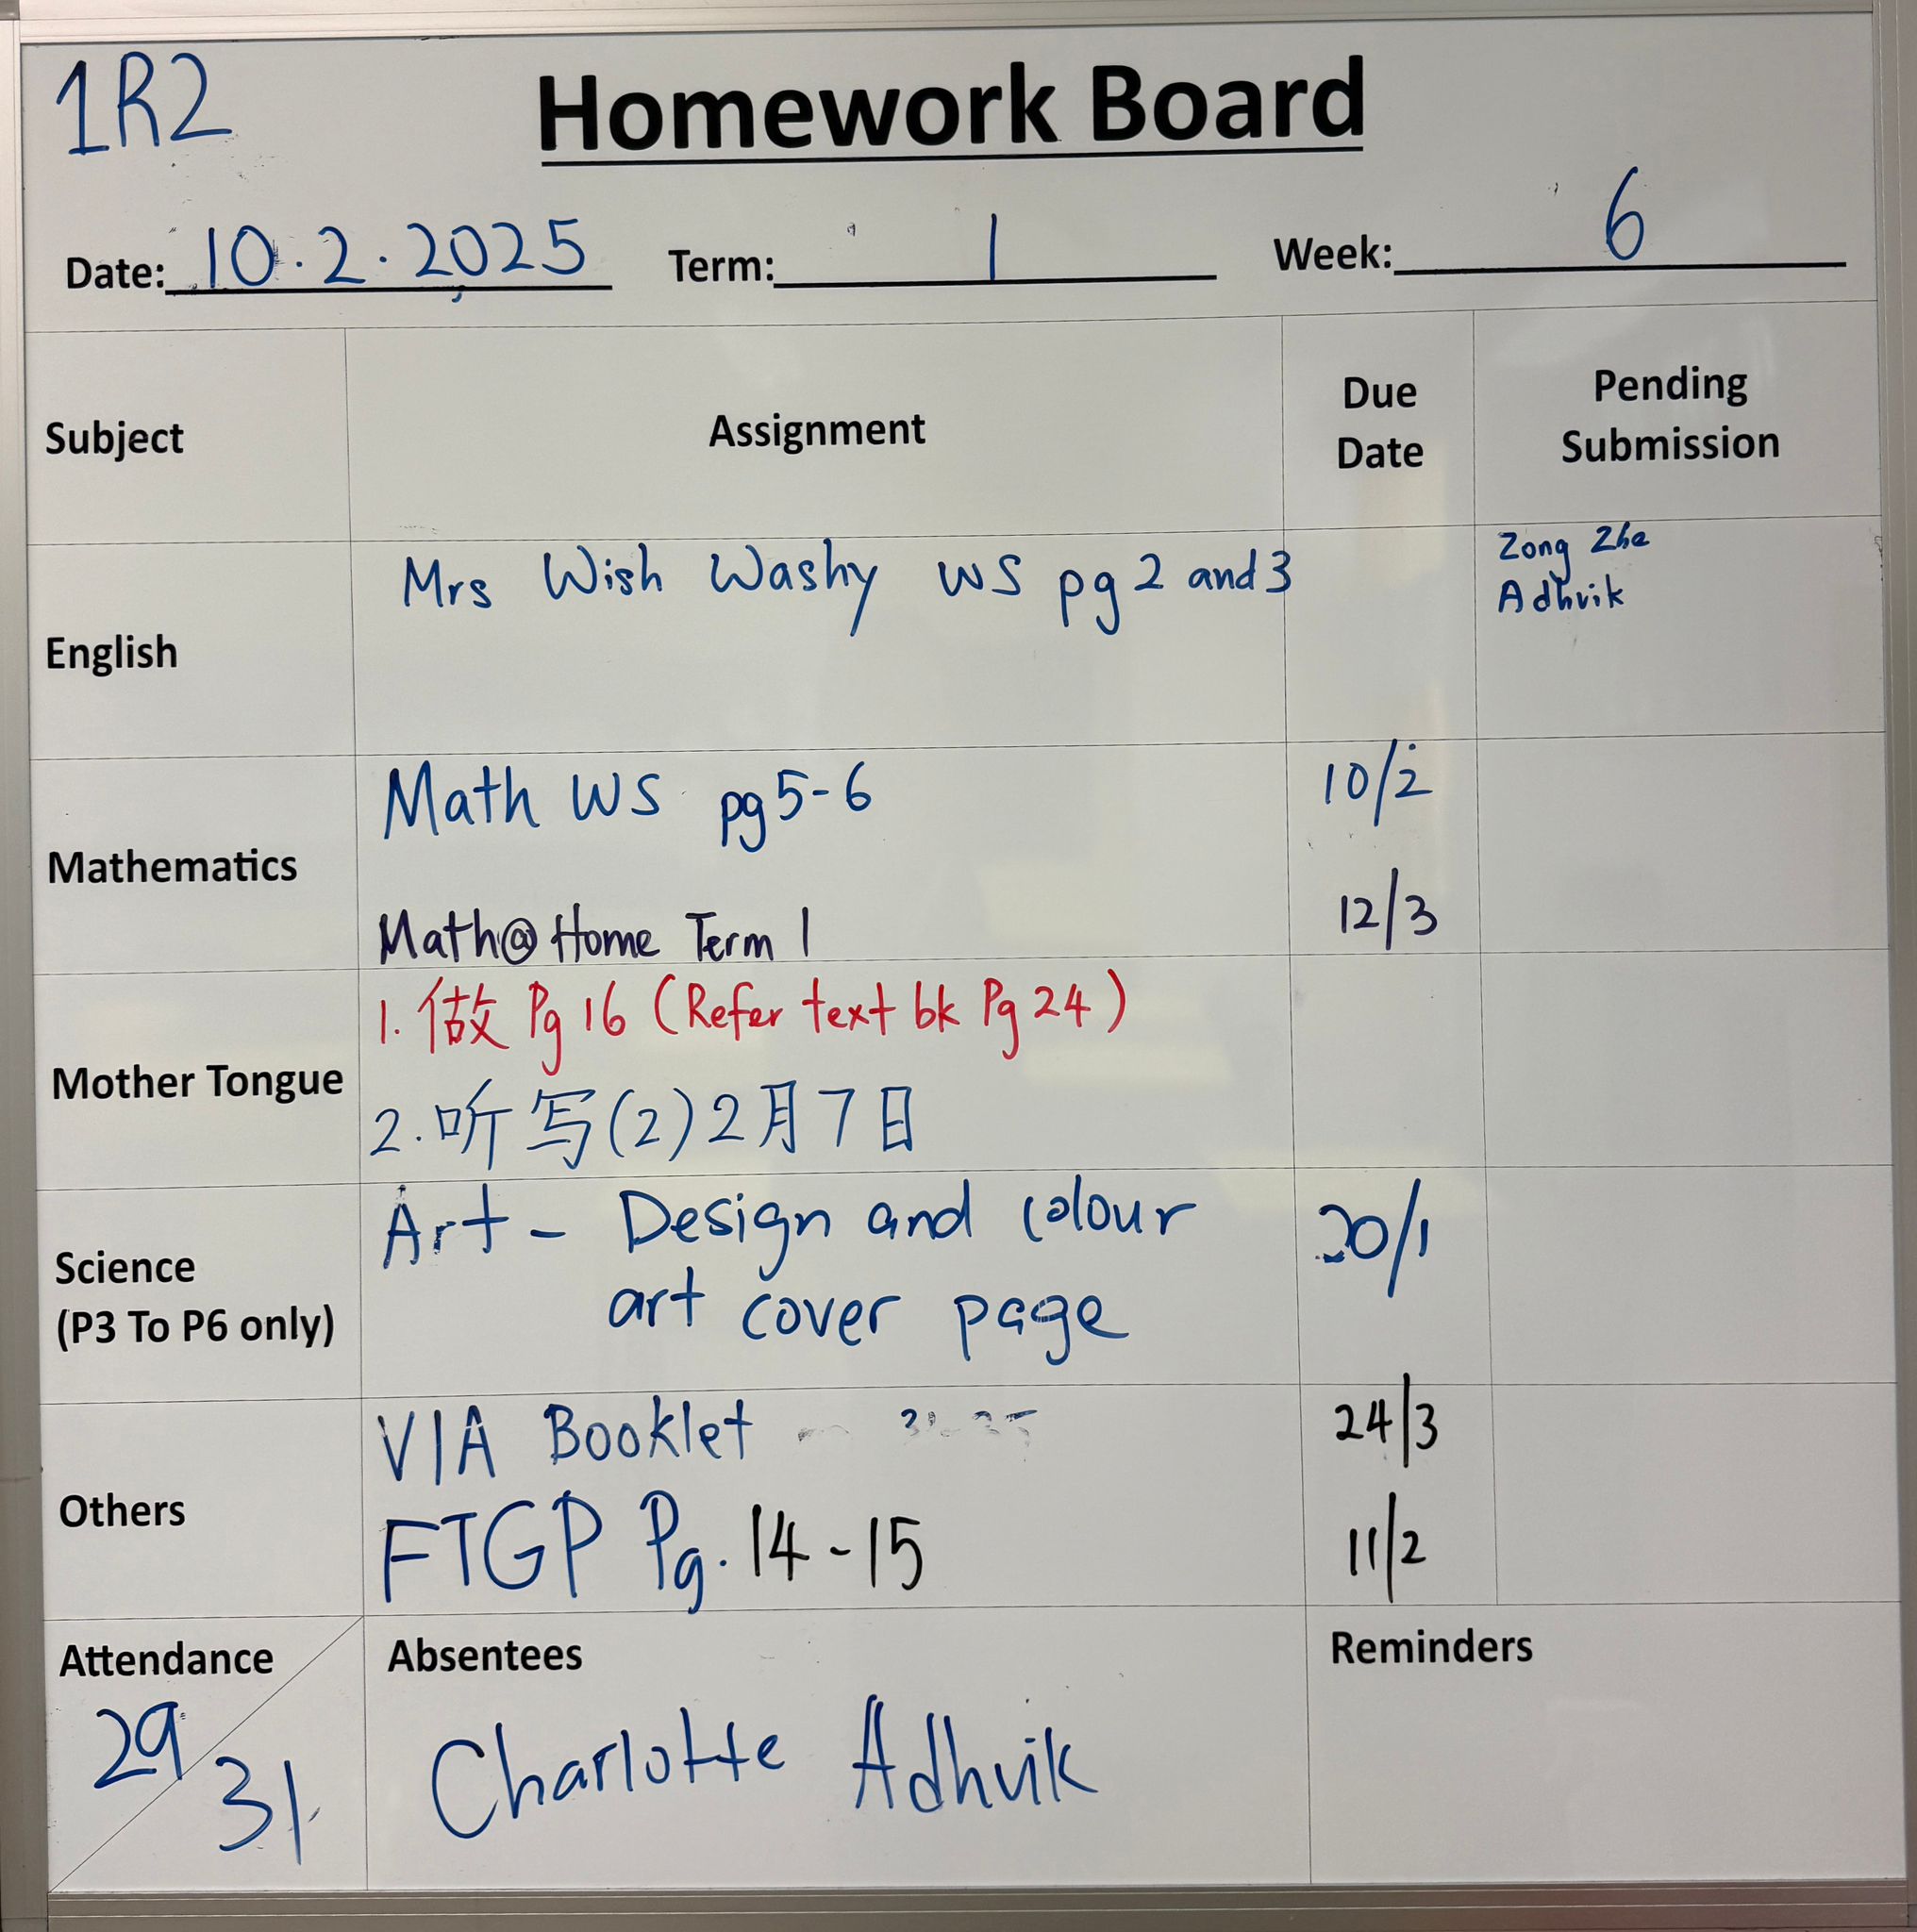 1R2
Homework Board
Date: 10.2.2025 Term: 1 Week: 6
Subject Assignment Due Date Pending Submission
English Mrs Wish Washy WS pg 2 and 3 Zong Zhe
Adhvik
Mathematics Math WS pg 5-6 10/2
Math@Home Term 1 12/3
Mother Tongue 1. 做 Pg 16 (Refer text bk Pg 24)
2. 听写(2) 2月7日
Science
(P3 To P6 only) Art - Design and colour 20/1
art cover page
Others VIA Booklet 24/3
FTGP Pg. 14-15 11/2
Attendance Absentees Reminders
29/31 Charlotte Adhvik